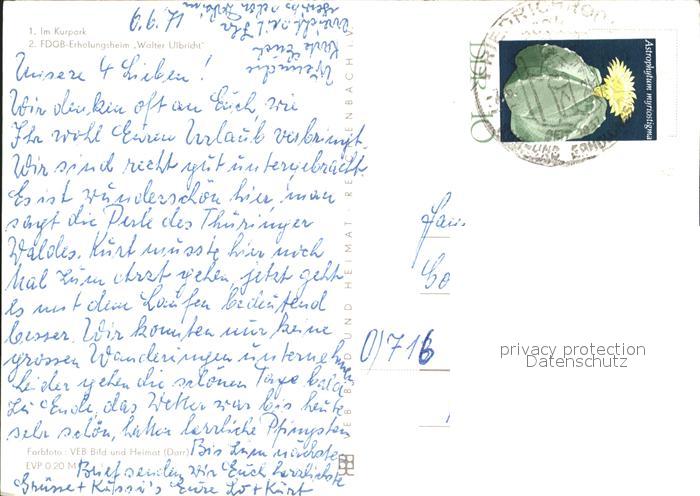 6.6.71
1. Im Kurpark
2. FDGB-Erholungsheim „Walter Ulbricht"
Unsere 4 Lieben!
Wir denken oft an Euch, wie
Ihr wohl Euren Urlaub verbringt.
Wir sind recht gut untergebracht.
Es ist wunderschön hier, man
sagt die Perle des Thüringer
Waldes. Kurt musste hier noch
Mal zum Arzt gehen, jetzt geht
es mit dem Laufen bedeutend
besser. Wir konnten nur keine
grossen Wanderungen unternehmen
Leider gehen die schönen Tage bald
zu Ende, das Wetter war bis heute
sehr schön, hatten herrliche Pfingsten
Bis zum nächsten
Brief senden wir Euch herzlichste
Grüsse + Küssi's Eure Lo + Kurt
Farbfoto: VEB Bild und Heimat (Darr)
EVP 0.20 M
VEB BILD UND HEIMAT REICHENBACH I. V.
DDR 10
Astrophytum myriostigma
FRIEDRICHRODA
Fam.
0)716
privacy protection
Datenschutz